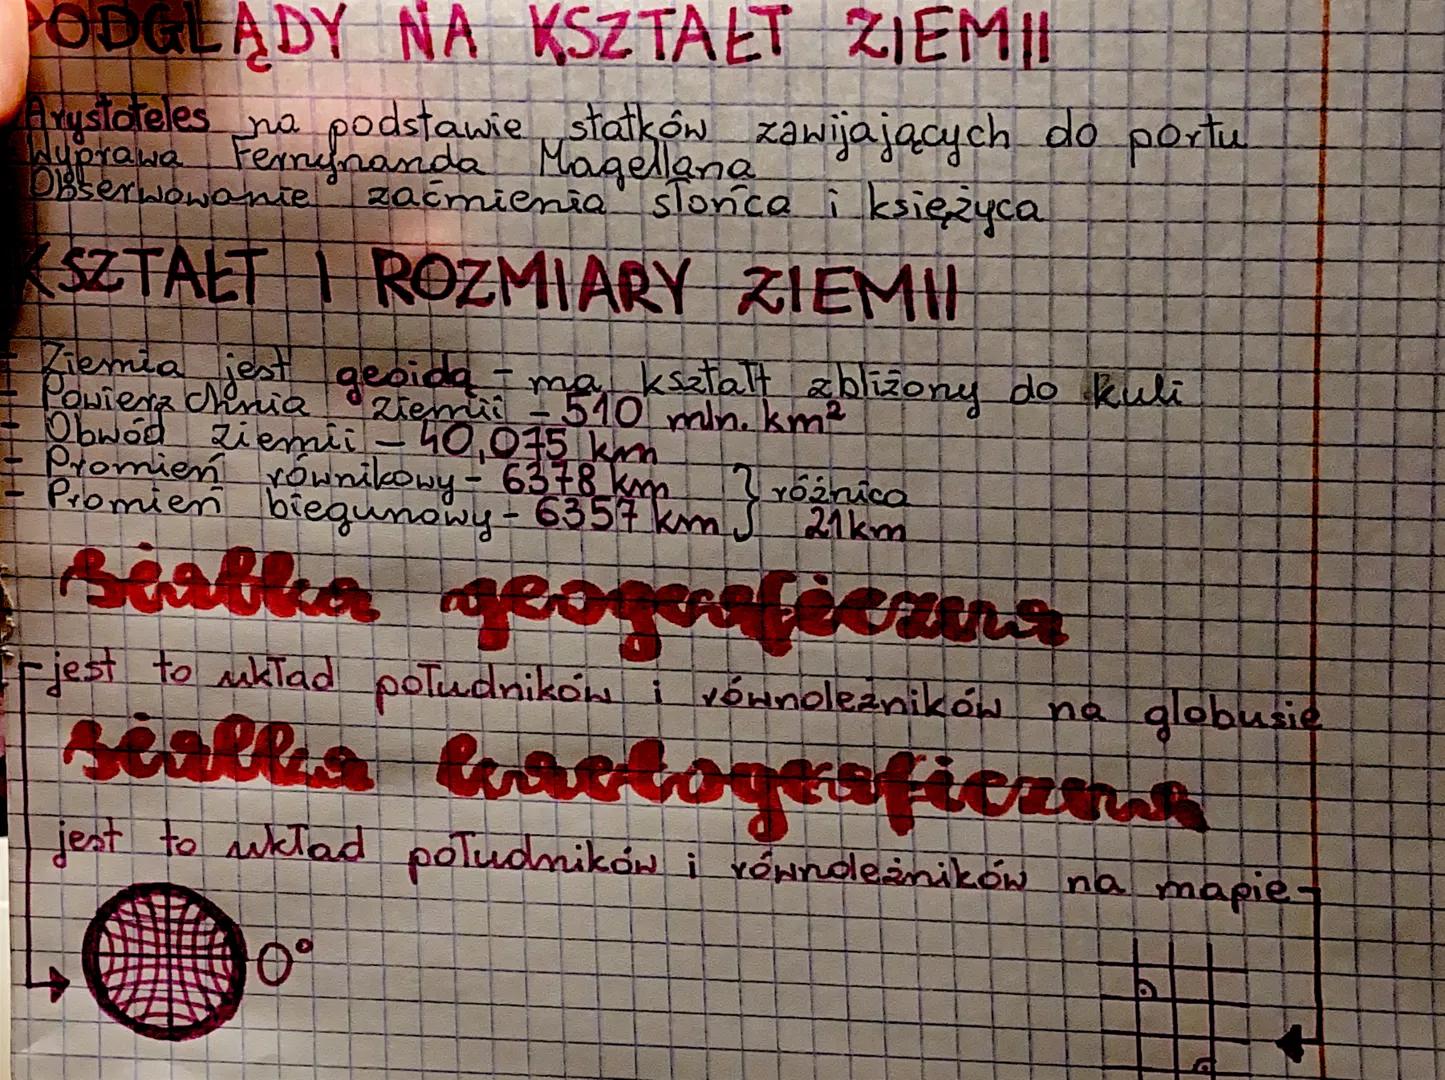 PODGLĄDY NA KSZTAŁT ZIEMII
Arystoteles na podstawie statków zawijających do portu
Wyprawa Fernynanda Magellana
Obserwowanie zaćmienia słońca i księżyca
KSZTAŁT I ROZMIARY ZIEMII
- Ziemia jest geoidą - ma kształt zbliżony do kuli
- Powierzchnia ziemii - 510 mln. km²
- Obwód ziemii - 40,075 km
- Promień równikowy - 6378 km } różnica
- Promień biegunowy - 6357 km } 21km
siatka geograficzna
jest to układ południków i równoleżników na globusie
siatka kartograficzna
jest to układ południków i równoleżników na mapie
0°